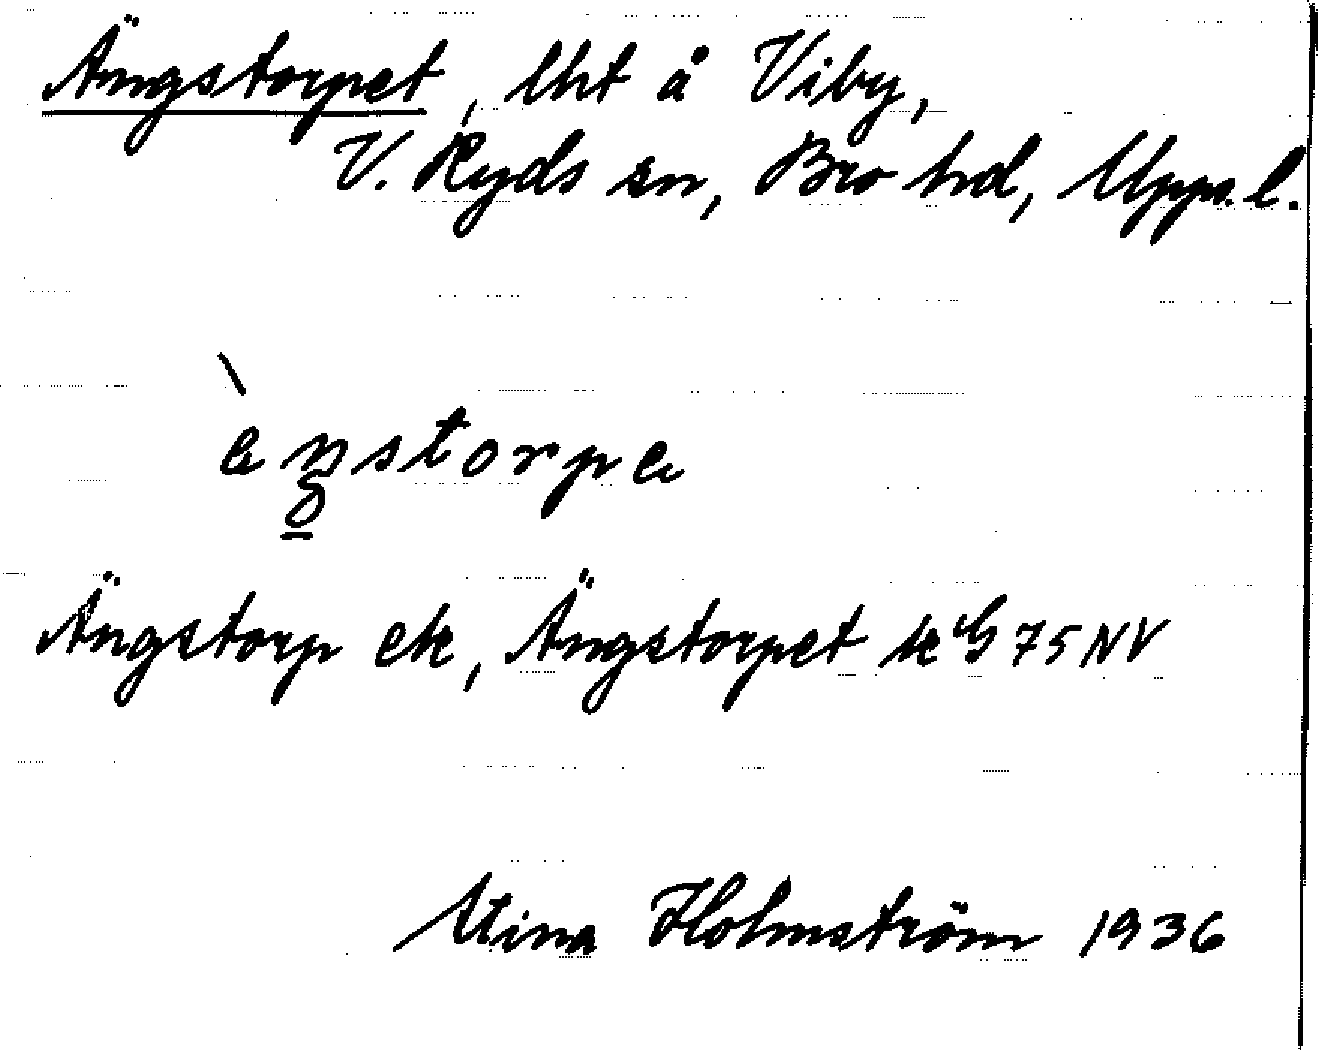 Ängstorpet, lht å Viby,
V. Ryds sn, Bro hd, Upps. l.
è̀ŋstorpe
Ängstorp ek, Ängstorpet k G 75 NV
Stina Holmström 1936